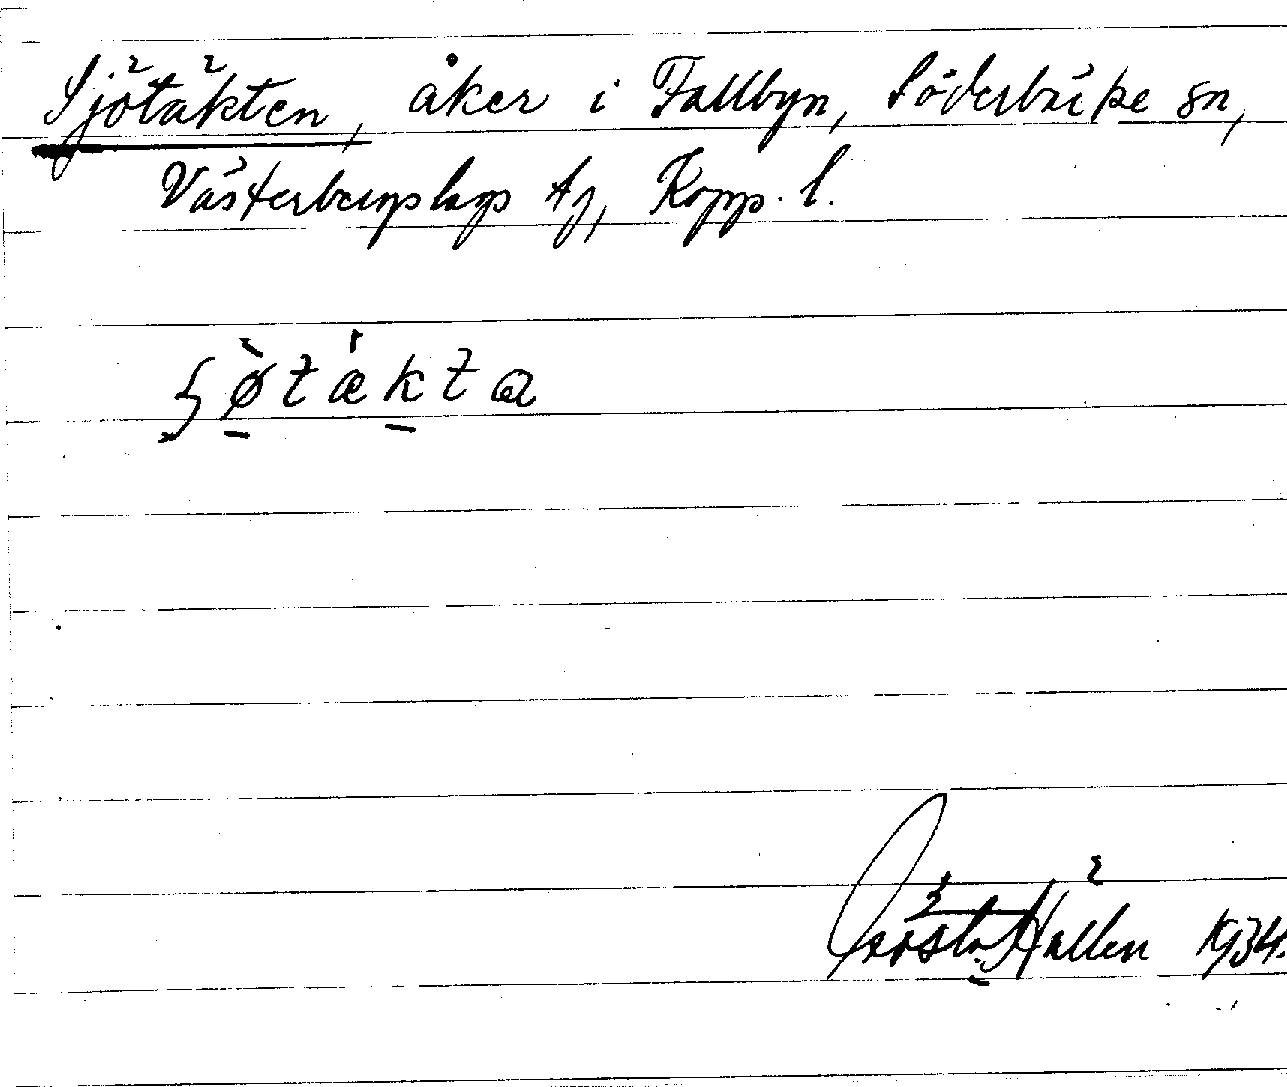 Sjötäkten, åker i Fallbyn, Söderbärke sn,
Västerbergslags tg, Kopp. l.
ʃø̀tǽkta
Gösta Hällen 1934.